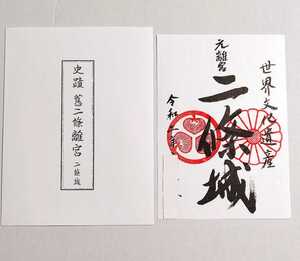 史蹟 舊二條離宮 二條城
世界文化遺産
元離宮
二條城
令和二年